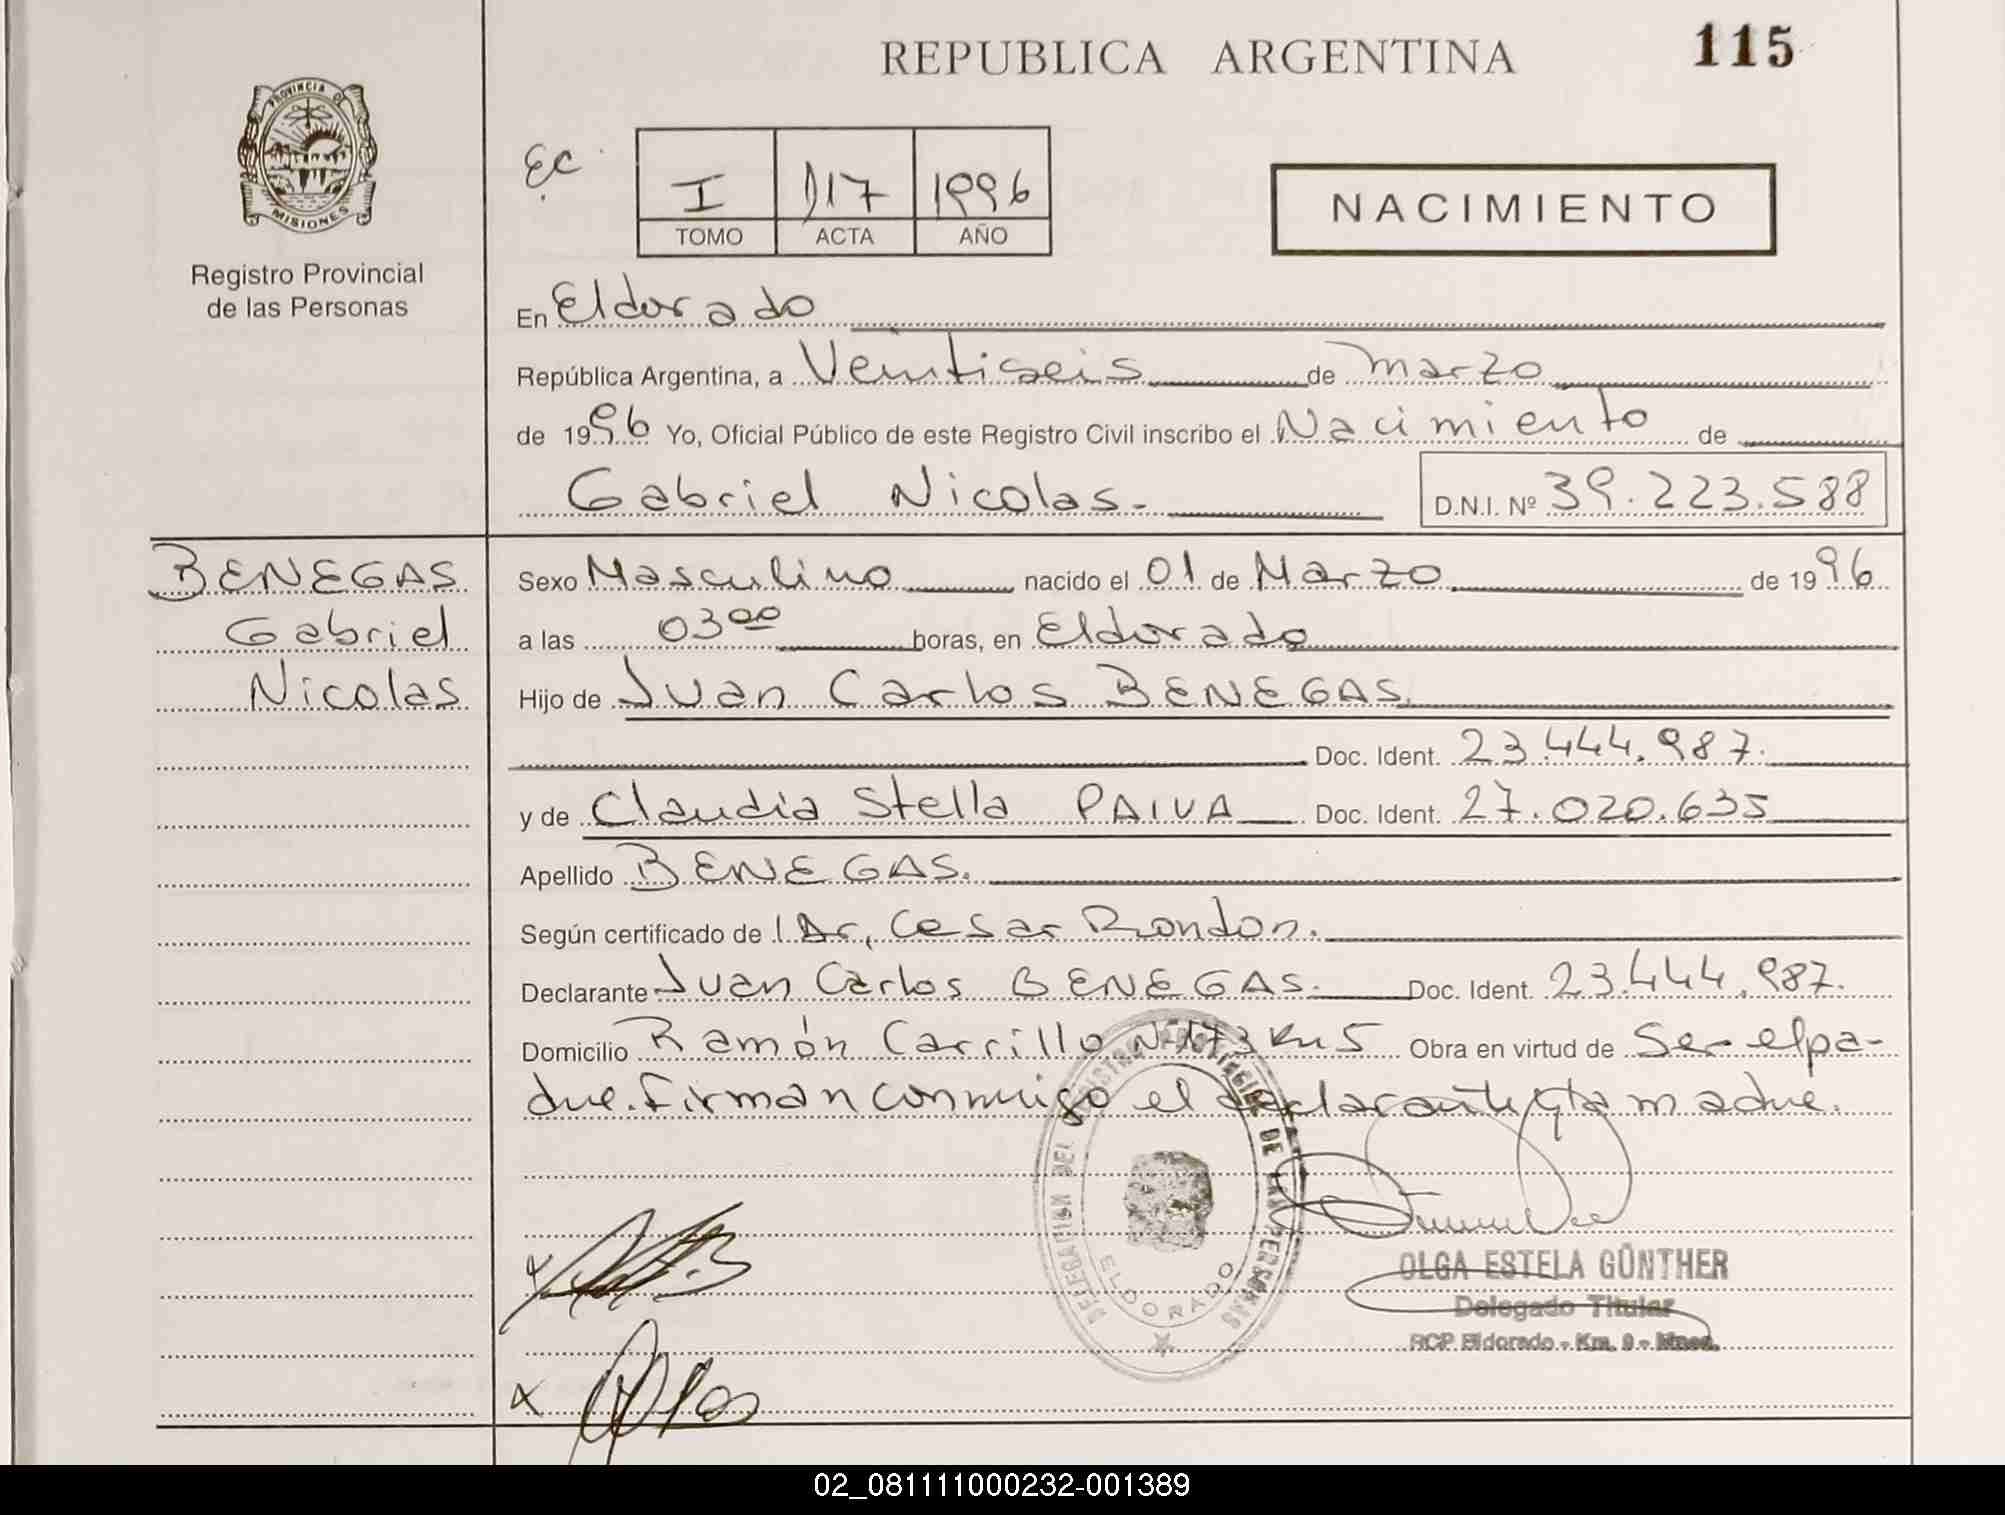 REPUBLICA ARGENTINA
115
PROVINCIA DE MISIONES
Registro Provincial
de las Personas
EC
I 117 1996
TOMO ACTA AÑO
NACIMIENTO
En Eldorado
República Argentina, a Veintiseis de marzo
de 1996 Yo, Oficial Público de este Registro Civil inscribo el Nacimiento de
Gabriel Nicolas.- D.N.I. Nº 39.223.588
BENEGAS
Gabriel
Nicolas
Sexo Masculino nacido el 01 de Marzo de 1996
a las 03 00 horas, en Eldorado
Hijo de Juan Carlos BENEGAS.
Doc. Ident. 23.444.987.
y de Claudia Stella PAIVA Doc. Ident. 27.020.635
Apellido BENEGAS.
Según certificado de Dr, Cesar Rondon.
Declarante Juan Carlos BENEGAS. Doc. Ident. 23.444.987.
Domicilio Ramón Carrillo Km 5 Obra en virtud de Ser el pa-
dre. firman conmigo el declarante y la madre.
DELEGACION DEL REGISTRO PROVINCIAL DE LAS PERSONAS
ELDORADO
OLGA ESTELA GÜNTHER
Delegado Titular
RCP Eldorado - Km. 9 - Mnes.
02_081111000232-001389